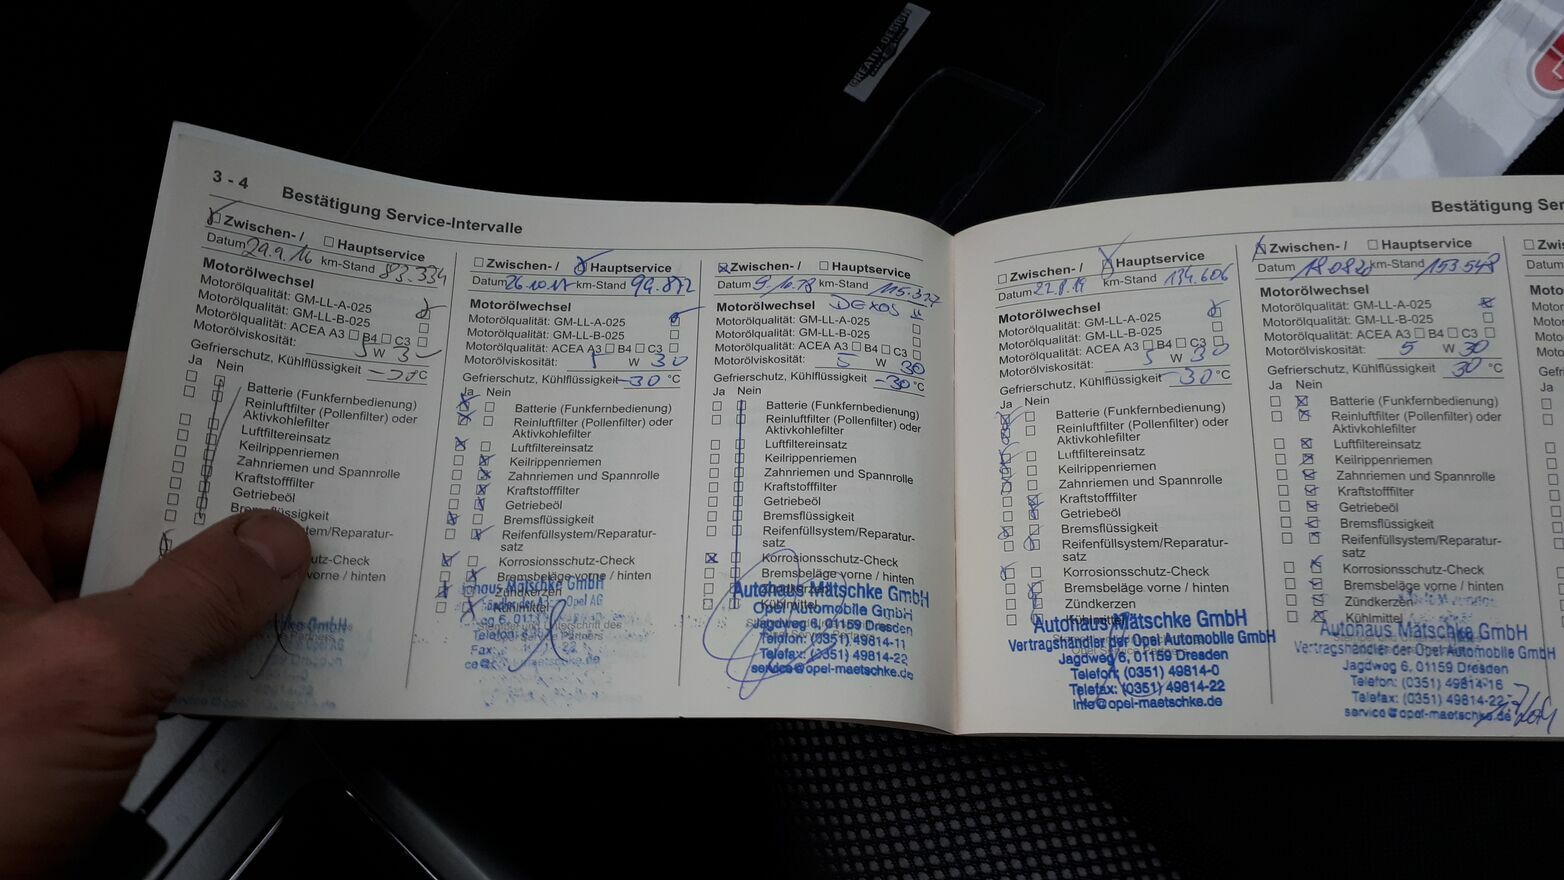 CREATIV DESIGN
3 - 4
Bestätigung Service-Intervalle
Zwischen- / Hauptservice
Datum 29.9.16 km-Stand 83.334
Motorölwechsel
Motorölqualität: GM-LL-A-025
Motorölqualität: GM-LL-B-025
Motorölqualität: ACEA A3 B4 C3
Motorölviskosität: 5 W 3
Gefrierschutz, Kühlflüssigkeit °C
Ja Nein
Batterie (Funkfernbedienung)
Reinluftfilter (Pollenfilter) oder
Aktivkohlefilter
Luftfiltereinsatz
Keilrippenriemen
Zahnriemen und Spannrolle
Kraftstofffilter
Getriebeöl
Bremsflüssigkeit
stem/Reparatur-
osionsschutz-Check
vorne / hinten
Zwischen- / Hauptservice
Datum 26.10.17 km-Stand 99.872
Motorölwechsel
Motorölqualität: GM-LL-A-025
Motorölqualität: GM-LL-B-025
Motorölqualität: ACEA A3 B4 C3
Motorölviskosität: W 30
Gefrierschutz, Kühlflüssigkeit -30 °C
Ja Nein
Batterie (Funkfernbedienung)
Reinluftfilter (Pollenfilter) oder
Aktivkohlefilter
Luftfiltereinsatz
Keilrippenriemen
Zahnriemen und Spannrolle
Kraftstofffilter
Getriebeöl
Bremsflüssigkeit
Reifenfüllsystem/Reparatur-
satz
Korrosionsschutz-Check
Bremsbeläge vorne / hinten
Zündkerzen
Kühlmittel
Mätschke GmbH
Zwischen- / Hauptservice
Datum 9.10.18 km-Stand 115.327
Motorölwechsel DEXOS II
Motorölqualität: GM-LL-A-025
Motorölqualität: GM-LL-B-025
Motorölqualität: ACEA A3 B4 C3
Motorölviskosität: 5 W 30
Gefrierschutz, Kühlflüssigkeit -30 °C
Ja Nein
Batterie (Funkfernbedienung)
Reinluftfilter (Pollenfilter) oder
Aktivkohlefilter
Luftfiltereinsatz
Keilrippenriemen
Zahnriemen und Spannrolle
Kraftstofffilter
Getriebeöl
Bremsflüssigkeit
Reifenfüllsystem/Reparatur-
satz
Korrosionsschutz-Check
Bremsbeläge vorne / hinten
Zündkerzen
Kühlmittel
Autohaus Mätschke GmbH
Opel Automobile GmbH
Jagdweg 6, 01159 Dresden
Telefon: (0351) 49814-11
Telefax: (0351) 49814-22
service@opel-maetschke.de
Zwischen- / Hauptservice
Datum 22.8.19 km-Stand 134.606
Motorölwechsel
Motorölqualität: GM-LL-A-025
Motorölqualität: GM-LL-B-025
Motorölqualität: ACEA A3 B4 C3
Motorölviskosität: 5 W 30
Gefrierschutz, Kühlflüssigkeit -30 °C
Ja Nein
Batterie (Funkfernbedienung)
Reinluftfilter (Pollenfilter) oder
Aktivkohlefilter
Luftfiltereinsatz
Keilrippenriemen
Zahnriemen und Spannrolle
Kraftstofffilter
Getriebeöl
Bremsflüssigkeit
Reifenfüllsystem/Reparatur-
satz
Korrosionsschutz-Check
Bremsbeläge vorne / hinten
Zündkerzen
Kühlmittel
Autohaus Mätschke GmbH
Vertragshändler der Opel Automobile GmbH
Jagdweg 6, 01159 Dresden
Telefon: (0351) 49814-0
Telefax: (0351) 49814-22
info@opel-maetschke.de
Bestätigung Ser
Zwischen- / Hauptservice
Datum 18.08.2 km-Stand 153.548
Motorölwechsel
Motorölqualität: GM-LL-A-025
Motorölqualität: GM-LL-B-025
Motorölqualität: ACEA A3 B4 C3
Motorölviskosität: 5 W 30
Gefrierschutz, Kühlflüssigkeit 30 °C
Ja Nein
Batterie (Funkfernbedienung)
Reinluftfilter (Pollenfilter) oder
Aktivkohlefilter
Luftfiltereinsatz
Keilrippenriemen
Zahnriemen und Spannrolle
Kraftstofffilter
Getriebeöl
Bremsflüssigkeit
Reifenfüllsystem/Reparatur-
satz
Korrosionsschutz-Check
Bremsbeläge vorne / hinten
Zündkerzen
Kühlmittel
Autohaus Mätschke GmbH
Vertragshändler der Opel Automobile GmbH
Jagdweg 6, 01159 Dresden
Telefon: (0351) 49814-16
Telefax: (0351) 49814-22
service@opel-maetschke.de
Zwisc
Datum
Motoröl
Motorölq
Motorölq